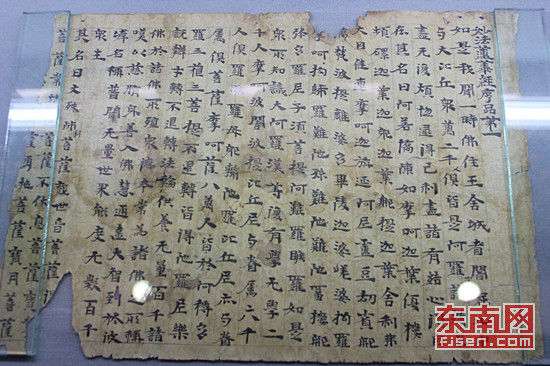 妙法蓮華經序品第一
如是我聞一時佛住王舍城耆闍崛
与大比丘衆萬二千人俱皆是阿羅
盡无復煩惱逮得己利盡諸有結心
在其名曰阿若憍陳如摩訶迦葉優樓
頻螺迦葉迦耶迦葉那提迦葉舍利弗
大目揵連摩訶迦旃延阿尼盧豆劫賓那
憍梵波提離婆多畢陵伽婆蹉薄拘羅
摩訶拘絺羅難陀孫陀羅難陀富樓那
弥多羅尼子須菩提阿難羅睺羅如是
衆所知識大阿羅漢等復有學无學二
千人摩訶波闍波提比丘尼与眷属六千
人俱羅睺羅母耶輸陀羅比丘尼亦与眷
属俱菩薩摩訶薩八萬人皆於阿耨多
羅三藐三菩提不退轉皆得陀羅尼樂
說辯才轉不退轉法輪供養无量百千諸
佛於諸佛所殖衆德本常為諸佛之所稱
歎以慈脩身善入佛慧通達大智到於彼
岸名稱普聞无量世界能度无數百千
衆生
其名曰文殊師利菩薩觀世音菩薩
菩薩不休息菩薩寶
菩薩藥
勇施菩薩寶月菩薩
东南网
fjsen.com